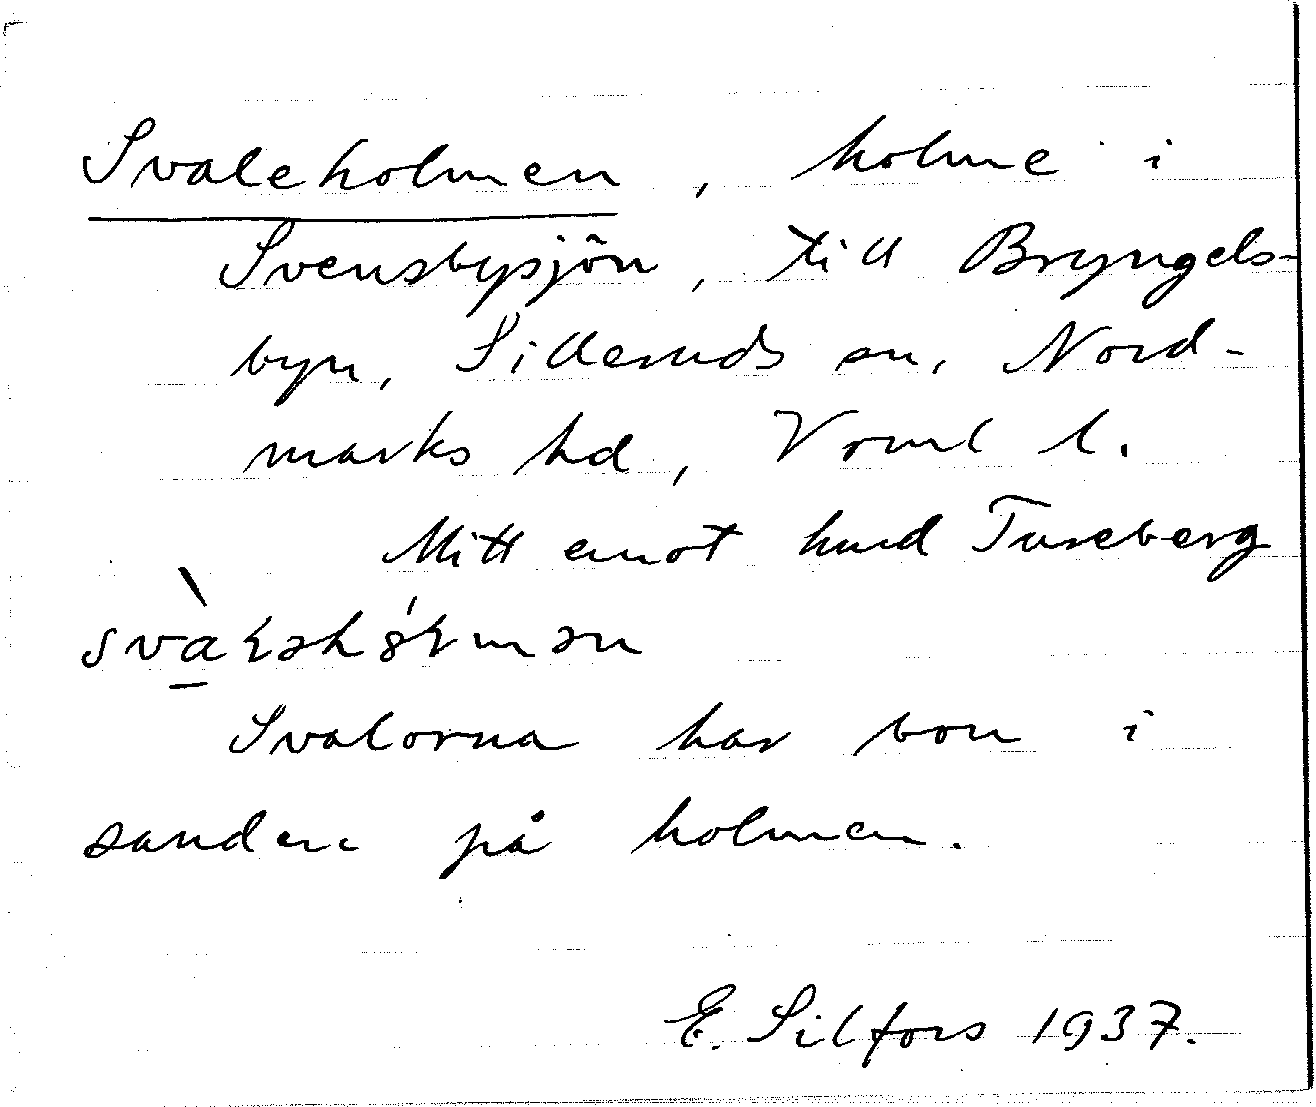 Svaleholmen, holme i
Svensbysjön, till Bryngels-
byn, Silleruds sn, Nord-
marks hd, Vrml l.
Mitt emot hmd Tureberg
svàɽəhɞ́ɽmən
Svalorna har bon i
sanden på holmen.
E. Silfors 1937.